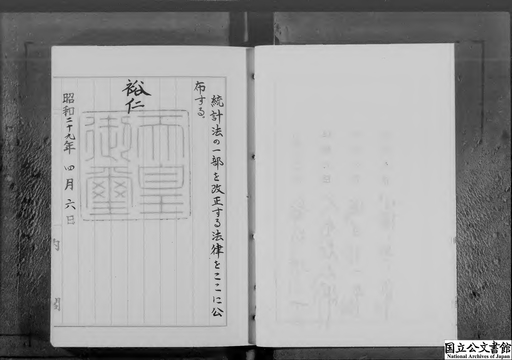 統計法の一部を改正する法律をここに公
布する。
裕仁
天皇
御璽
昭和二十九年四月六日
内閣
国立公文書館
National Archives of Japan